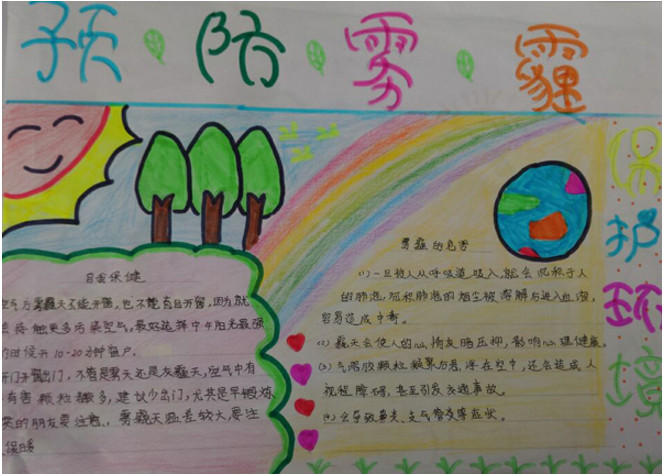 预防雾霾
保护环境
自我保健
空气与雾霾天不能开窗,也不能盲目开窗,因为就
会接触更多污染空气,最好选择中午阳光最强
的时候开10-20分钟窗户。
开门开窗出门,不管是雾天还是灰霾天,空气中有
有害颗粒都多,建议少出门,尤其是早锻炼
的朋友要注意。雾霾天温差较大要注
保暖
雾霾的危害
(1)一旦被人从呼吸道吸入,就会沉积于人
的肺泡,沉积肺泡的烟尘被溶解后进入血液,
容易造成中毒。
(2)霾天会使人的心情灰暗压抑,影响心理健康。
(3)气溶胶颗粒凝聚后,浮在空中,还会造成人
视程障碍,甚至引发交通事故。
(4)会导致鼻炎、支气管炎等症状。